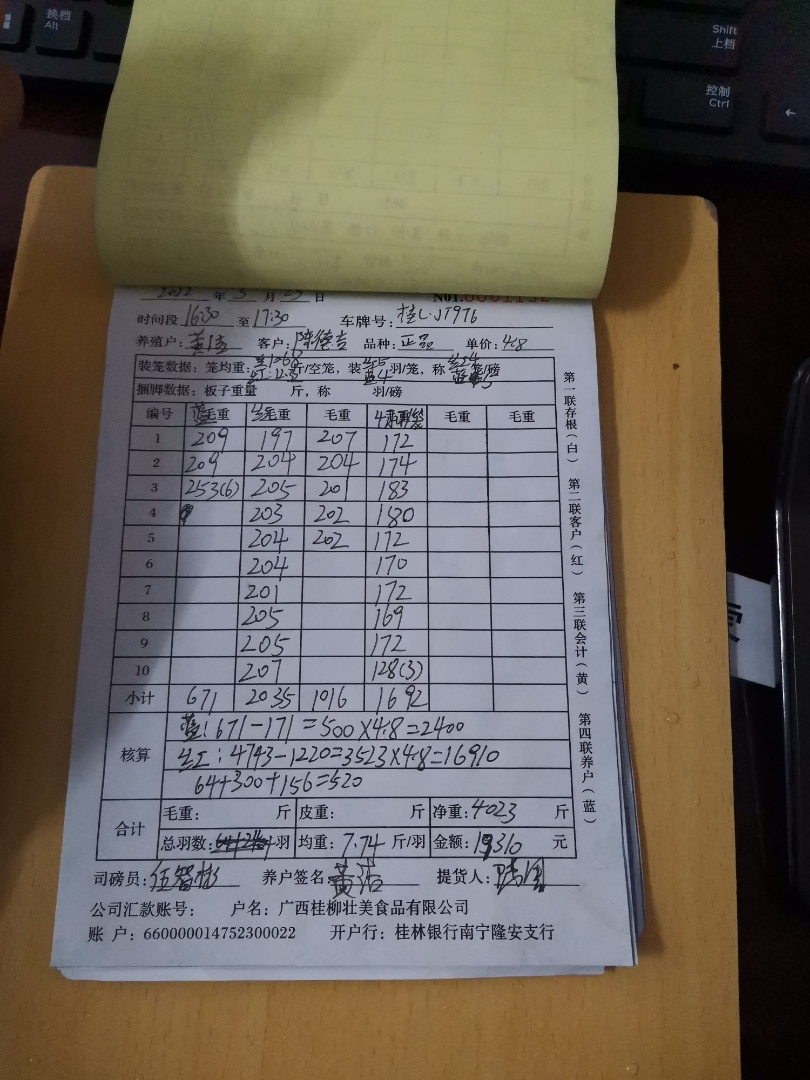 换档
Alt
Shift
上档
控制
Ctrl
年 月 日
时间段 16:30 至 17:30 车牌号: 桂L·JT976
养殖户: 客户: 陈德吉 品种: 正品 单价: 4.8
装笼数据: 笼均重: 斤/空笼, 装 羽/笼, 称 笼/磅
捆脚数据: 板子重量 斤, 称 羽/磅
编号 蓝毛重 红毛重 毛重 毛重 毛重
1 209 197 207 172
2 209 204 204 174
3 253(6) 205 201 183
4 203 202 180
5 204 202 172
6 204 170
7 201 172
8 205 169
9 205 172
10 207 128(3)
小计 671 2035 1016 1692
核算
蓝: 671-171=500×4.8=2400
红: 4743-1220=3523×4.8=16910
64+300+156=520
合计
毛重: 斤 皮重: 斤 净重: 4023 斤
总羽数: 羽 均重: 7.74 斤/羽 金额: 19310 元
司磅员: 养户签名: 提货人:
公司汇款账号: 户名: 广西桂柳壮美食品有限公司
账 户: 660000014752300022 开户行: 桂林银行南宁隆安支行
第一联存根(白) 第二联客户(红) 第三联会计(黄) 第四联养户(蓝)